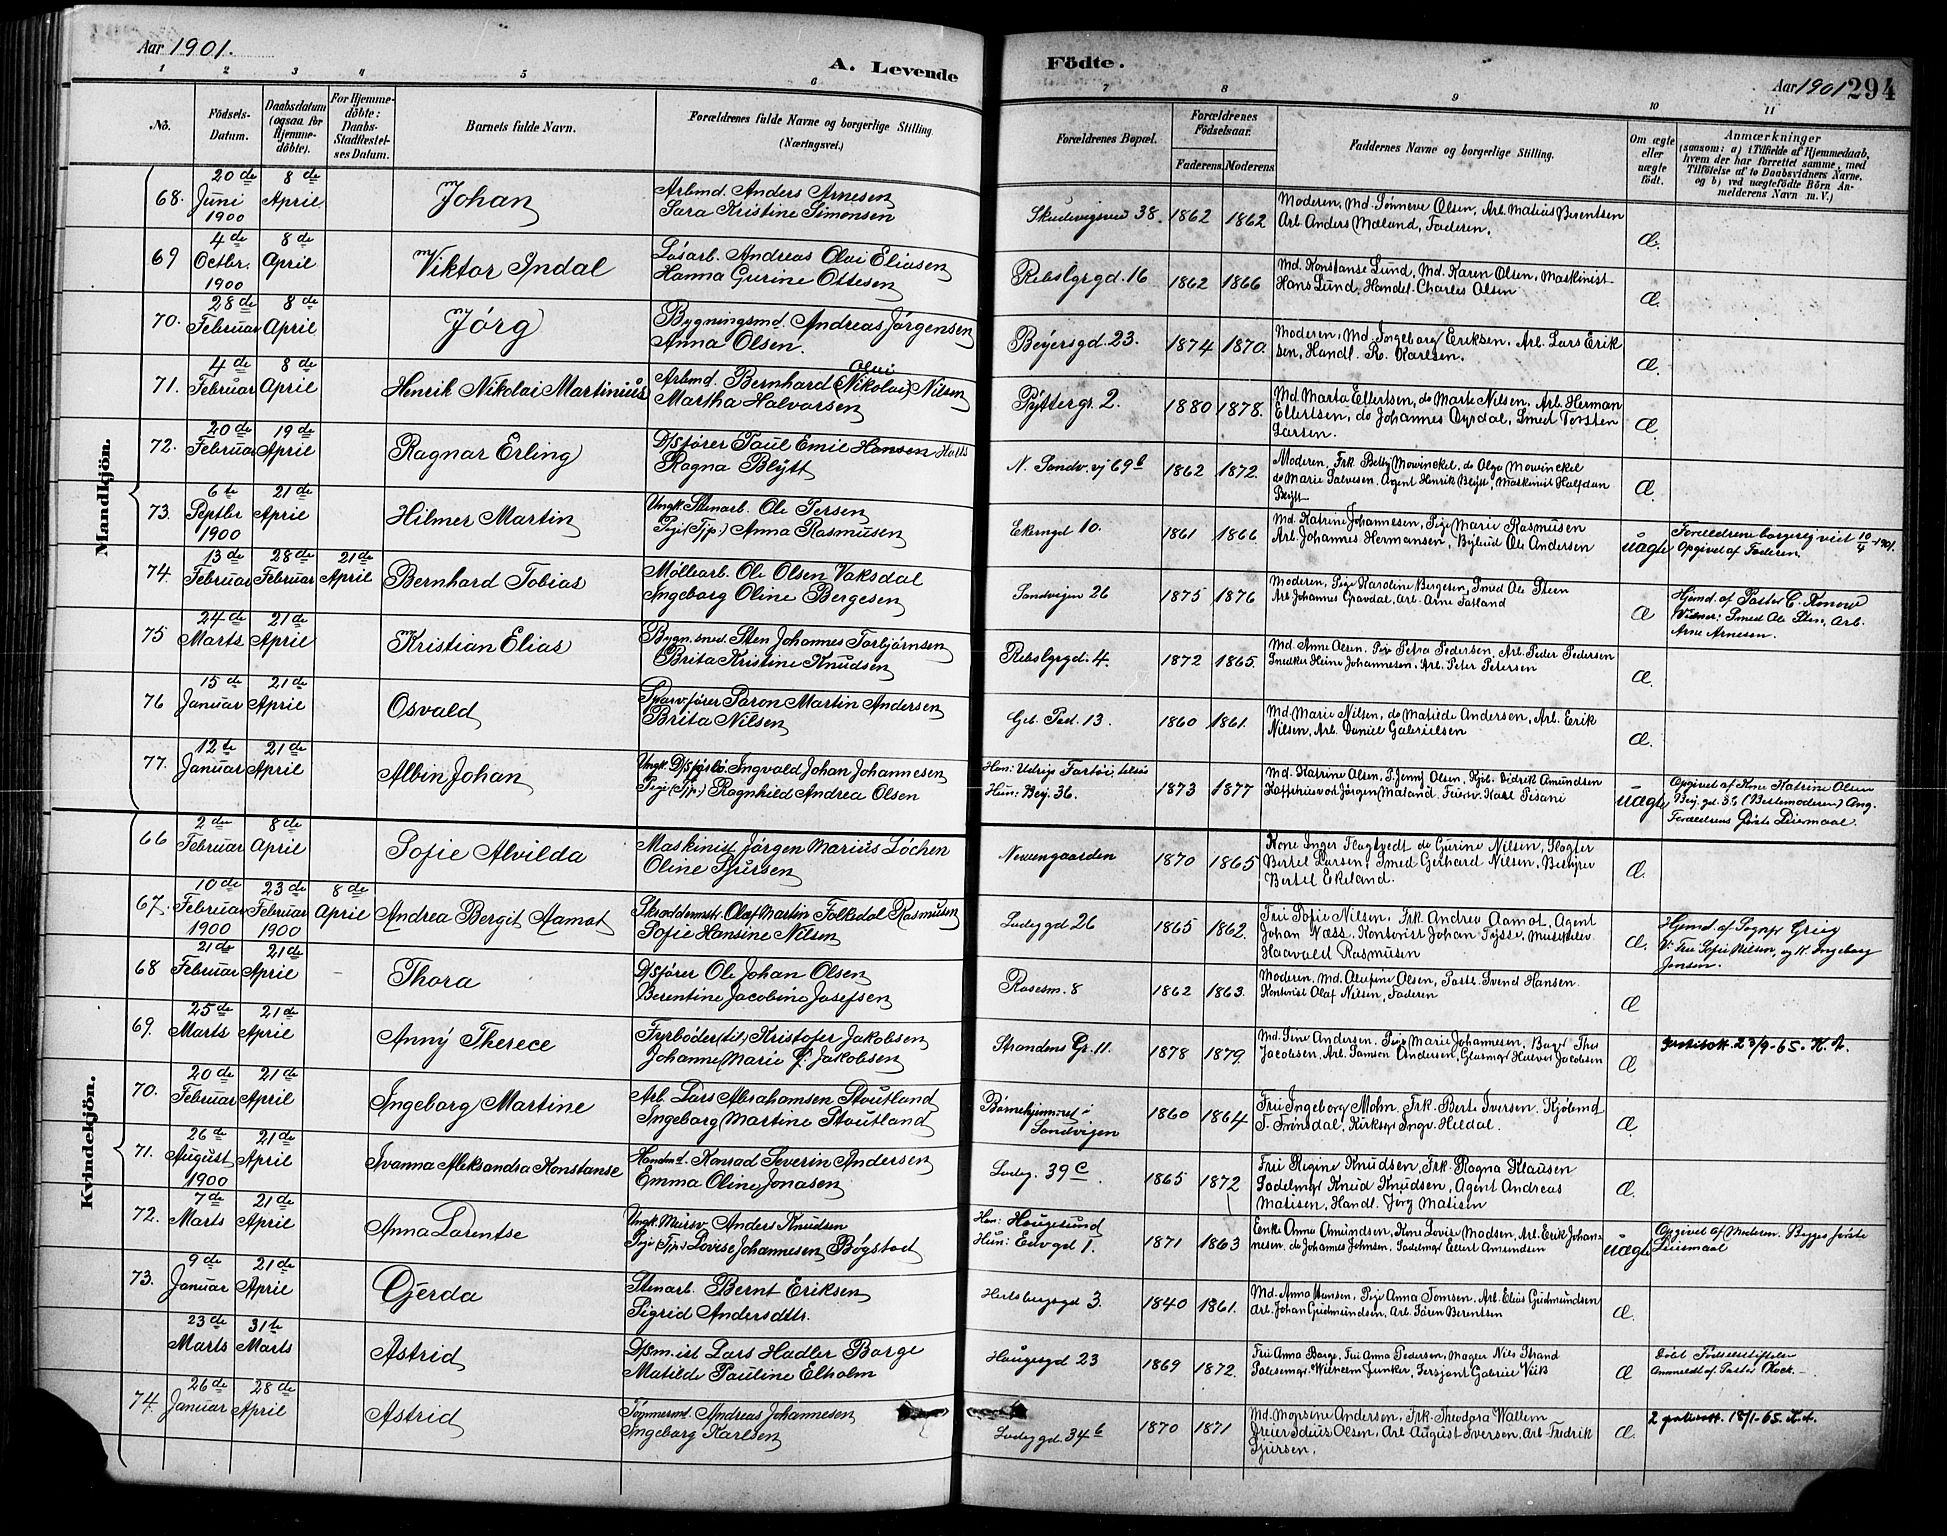 Aar 1901.
A. Levende
Födte.
Aar 1901
294
1 2 3 4 5 6 7 8 9 10 11
No.
Födsels-Datum.
Daabsdatum (ogsaa for Hjemmedöbte).
For Hjemmedöbte: Daabs-Stadfæstelses Datum.
Barnets fulde Navn.
Forældrenes fulde Navne og borgerlige Stilling. (Næringsvei.)
Forældrenes Bopæl.
Forældrenes Födselsaar.
Faderens. Moderens
Faddernes Navne og borgerlige Stilling.
Om ægte eller uægte födt.
Anmærkninger
(saasom: a) i Tilfælde af Hjemmedaab, hvem der har forrettet samme, med Tilföielse af to Daabsvidners Navne, og b) ved uægtefödte Börn Anmelderens Navn m. V.)
Mandkjön.
68. 20de Juni 1900 8de April Johan
Arbmd. Anders Arnesen
Sara Kristine Simonsen
Skudevigsvei 38. 1862 1862
Moderen, Md. Sønneve Olsen, Arb. Matius Berentsen
Arb. Anders Mæland, Faderen.
Æ.
69 4de Octbr. 1900 8de April Viktor Indal
Løsarb. Andreas Olai Eliasen
Hanna Gurine Ottesen
Rebslgrgd. 16 1862 1866
Md. Konstanse Lund, Md. Karen Olsen, Maskinist
Hans Lund, Handel. Charles Olsen
Æ.
70. 28de Februar 8de April Jørg
Bygningsmd. Andreas Jørgensen
Anna Olsen.
Beyersgd. 23. 1874 1870.
Moderen, Md. Ingeborg Eriksen, Arb. Lars Erik
sen, Handl. R. Karlsen.
Æ.
71. 4de Februar 8de April Henrik Nikolai Martinius
Arbmd. Bernhard (Nikolai) Olai Nilsen
Martha Halvorsen
Pyttergr. 2. 1880 1878.
Md. Marta Ellertsen, do Marte Nilsen, Arb. Herman
Ellertsen, do Johannes Øyrdal, Smed Torsten
Larsen.
Æ.
72. 20de Februar 19de April Ragnar Erling
D/Sfører Paul Emil Hansen Holts
Ragna Blytt
N. Sandv. vj 69b 1862 1872.
Moderen, Frk. Betty Mowinckel, do Olga Mowinckel
do Marie Salvesen, Agent Henrik Blytt, Maskinist Halfdan
Blytt
Æ.
73. 6te Septbr 1900 21de April Hilmer Martin
Ungk. Stenarb. Ole Tersen
Pige (Tjp.) Anna Rasmusen
Ekerngd 10. 1861 1866
Md. Katrine Johannesen, Pige Marie Rasmusen
Arb. Johannes Hermansen, Ole Andersen
uægte
Forældrene borgerlig viet 10/4 1901.
Opgivet af Faderen.
74. 13de Februar 28de Februar 21de April Bernhard Tobias
Møllearb. Ole Olsen Vaksdal
Ingeborg Oline Bergesen
Sandvigen 26 1875 1876
Moderen, Pige Karoline Bergesen, Smed Ole Steen
Arb. Johannes Gravdal, Arb. Arne Fatland
Æ
Hjemd. af Pastor C. Konow
Vidner: Smed Ole Sten, Arb.
Arne Arnesen.
75 24de Marts 21de April Kristian Elias
Bygn. sned. Sten Johannes Torbjørnsen
Brita Kristine Knudsen
Rebslgrgd. 4. 1872 1865.
Md. Anne Olsen, Pige Petra Pedersen, Arb. Peder Pedersen
Snedker Heine Johannesen, Arb. Peter Petersen
Æ.
76 15de Januar 21de April Osvald
Sparv.fører Søron Martin Andersen
Brita Nilsen
Geb. Pad. 13. 1860 1861.
Md. Marie Nilsen, do Matilde Andersen, Arb. Erik
Nilsen, Arb. Daniel Gabrielsen
Æ.
77. 12te Januar 21de April Albin Johan
Ungk. Ingvald Johan Johannesen
Pige (Tjp.) Ragnhild Andrea Olsen
Han:
Hun: Bej. 36. 1873 1877
Md. Katrine Olsen, P. Jenny Olsen, Kjb. Didrik Amundsen
Jørgen Maland, Karl Pisani
uægte
Opgivet af Kone Katrine Olsen
Bej. gd. 36 (Bestemoderen) Ang.
Forældrenes første Leiermaal.
Kvindekjön.
66 2de Februar 8de April Sofie Alvilda
Maskinist Jørgen Marius Løchen
Oline Sjursen
Newengaarden 1870 1865
Kone Inger Flagtvedt do Gurine Nilsen, Slagter
Bertel Larsen, Smed Gerhard Nilsen, Bestyrer
Bertel Ekeland.
Æ.
67. 10de Februar 1900 23de Februar 1900 8de April Andrea Bergit Aamot
Skræddermstr. Olaf Martin Folkedal Rasmusen
Sofie Hansine Nilsen
Ladeggd 26 1865 1862.
Frü Sofie Nilsen, Frk. Andrea Aamot, Agent
Johan Næss, Kontorist Johan Tysse, Musikelev
Haavald Rasmusen
Æ.
Hjemd. af Sognpr. Grieg
V: Frü Sofie Nilsen, og K. Ingeborg
Jensen.
68 21de Februar 21de April Thora
D/Sfører Ole Johan Olsen
Berentine Jacobine Josefsen
Rosesm. 8 1862 1863.
Moderen, Md. Olefine Olsen, Postb. Svend Hansen.
Kontorist Olaf Nilsen, Faderen
Æ
69. 25de Marts 21de April Anny Therece
Fyrbøder (til) Kristofer Jakobsen
Johanne Marie f. Jakobsen
Strandens Gr. 11. 1878 1879.
Md. Sine Andersen, Pige Marie Johannesen, Bager Thos
Jacobsen, Arb. Samson Andersen, Glasmgr Halvor Jacobsen
Æ
23/9-65. K. A.
70. 20de Februar 21de April Ingeborg Martine
Arb. Lars Abrahamsen Stoutland
Ingeborg Martine Stoutland
Børnehjemmet i
Sandvigen 1860 1864
Frü Ingeborg Mohn, Frk. Berte Iversen, Kjøbmd
T. Frønsdal, Kirksgr Ingv. Heldal.
Æ.
71. 26de August 1900 21de April Ivanna Aleksandra Konstanse
Handmd. Konrad Severin Andersen
Emma Oline Jonasen
Ladeg. 39c 1865 1872
Frü Regine Knudsen, Frk. Ragna Klausen
Sadelmgr Knud Knudsen, Agent Andreas
Matisen, Handl. Jørg Matisen
Æ.
72. 7de Marts 21de April Anna Larentse
Ungk. Mursv. Anders Knudsen
Pige (Tjp.) Lovise Johannesen Bøgstad
Han: Haugesund
Hun: Eivgd 1. 1871 1863
Enke Anna Amundsen, Kone Lovise Madsen, Arb. Erik Johan-
nesen, do Johannes Johnsen, Sadelmgr Ellert Amundsen
uægte
Opgivet af Moderen. Begges første
Leiermaal
73. 9de Januar 21de April Gjerda
Stenarb. Bernt Eriksen
Sigrid Andersdtt.
Hertsbergsgd 3. 1840 1861.
Md. Anna Hansen, Pige Anna Tomsen, Arb. Elias Gudmundsen
Arb. Johan Gudmundsen, Arb. Søren Berentsen
Æ.
23de Marts 31te Marts Astrid
D/Sm.ist Lars Hadler Borge
Matilde Pauline Elholm
Haugesgd 23 1869 1872.
Frü Anna Borge, Frü Anna Pedersen, Magler Nils Strand
Wilhelm Junker, Sersjant Gabriel Veik
Æ
Døbt Fødselsstiftelsen
Anmeldt af Pastor Klock.
74 26de Januar 28de April Astrid
Tømmermd. Andreas Johannesen
Ingeborg Karlsen
Ladeggd. 34b 1870 1871
Md. Mopsine Andersen, Frk. Theodora Wallem
Olsen, Arb August Iversen, Arb. Fredrik
Sjursen.
Æ.
18/1-65. K.A.